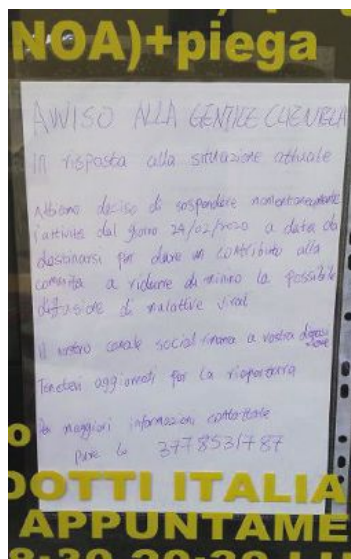 NOA)+piega
AVVISO ALLA GENTILE CLIENTELA
In risposta alla situazione attuale
Abbiamo deciso di sospendere momentaneamente
l'attività dal giorno 24/02/2020 a data da
destinarsi per dare un contributo alla
comunità a ridurre al minimo la possibile
diffusione di malattie virali
Il nostro canale social rimane a vostra disposizione
Tenetevi aggiornati per la riapertura
Per maggiori informazioni contattate
pure lo 3778531787
O
DOTTI ITALIA
APPUNTAME
8:30-20:30